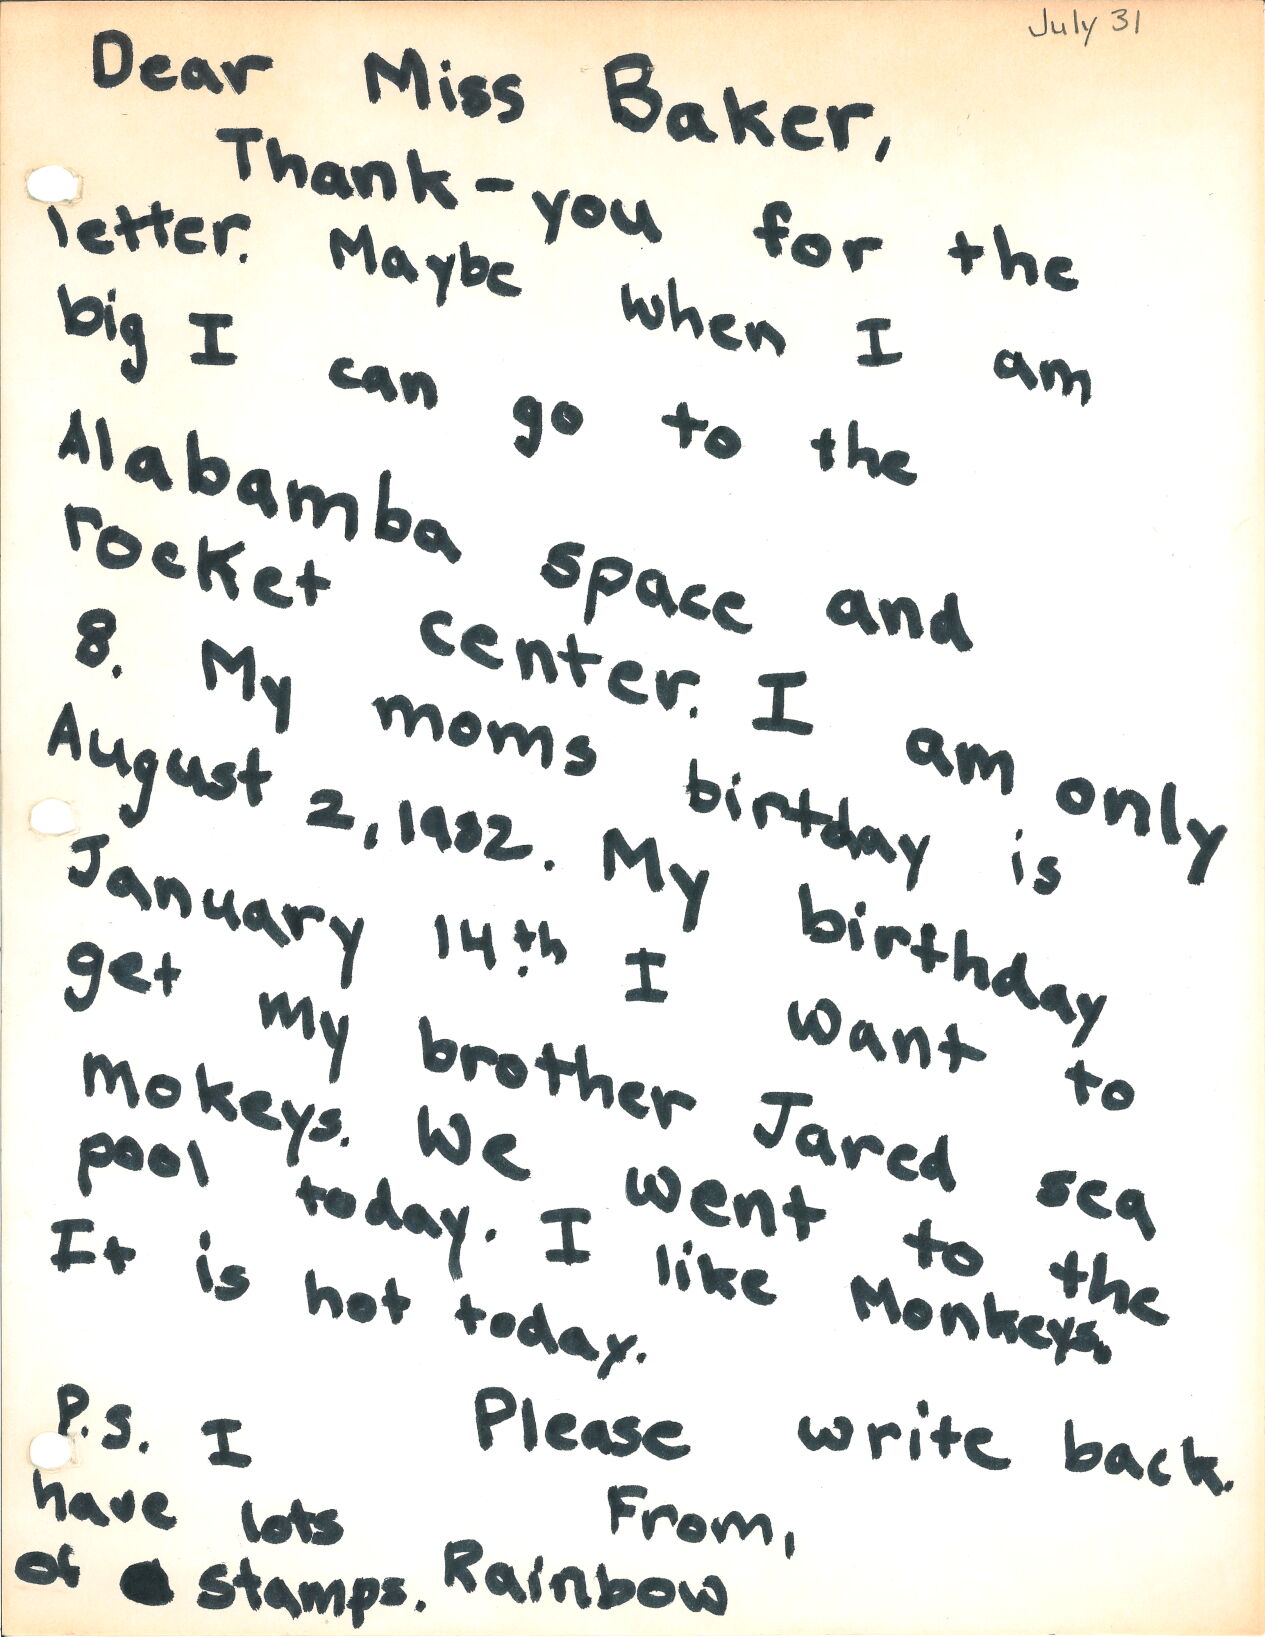 July 31
Dear Miss Baker,
Thank-you for the
letter. Maybe when I am
big I can go to the
Alabamba space and
rocket center. I am only
8. My moms birtday is
August 2, 1982. My birthday
January 14th I want to
get my brother Jared sea
mokeys. We went to the
pool today. I like Monkeys.
It is hot today.
Please write back.
From,
Rainbow
P.S. I
have lots
of stamps.